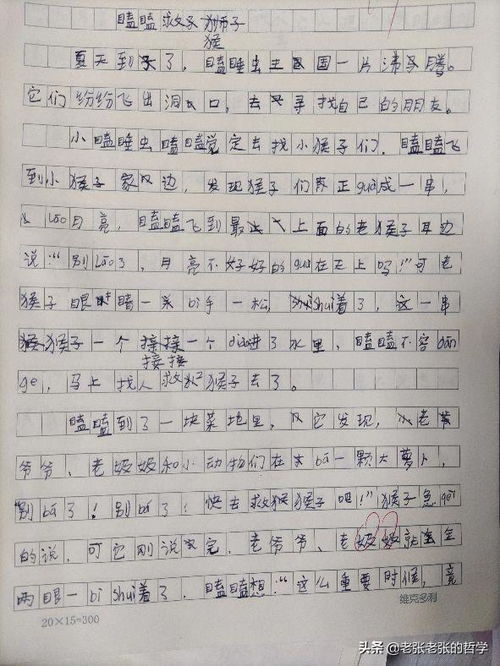 瞌瞌救猴子
夏天到了，瞌睡虫王国一片沸腾。
它们纷纷飞出洞口，去寻找自己的朋友。
小瞌睡虫瞌瞌决定去找小猴子们，瞌瞌飞
到小猴子家边，发现猴子们正guà成一串，
lāo月亮，瞌瞌飞到最上面的老猴子耳边
说："别lāo了，月亮不好好的guà在天上吗！"可老
猴子眼睛一bì手一松，shuì着了，这一串
猴子一个接接一个diào进了水里，瞌瞌不容dān
接接
ge，马上找人救猴子去了。
瞌瞌到了一块菜地里，它发现，老
爷爷、老奶奶和小动物们在bá一颗大萝卜，
"别bá了！别bá了！快去救猴子吧！"猴子急
的说，可它刚说完，老爷爷、老奶奶就
两眼一bì shuì着了，瞌瞌想："这么重要时候，竟
20×15=300
维克多利
头条 @老张老张的哲学